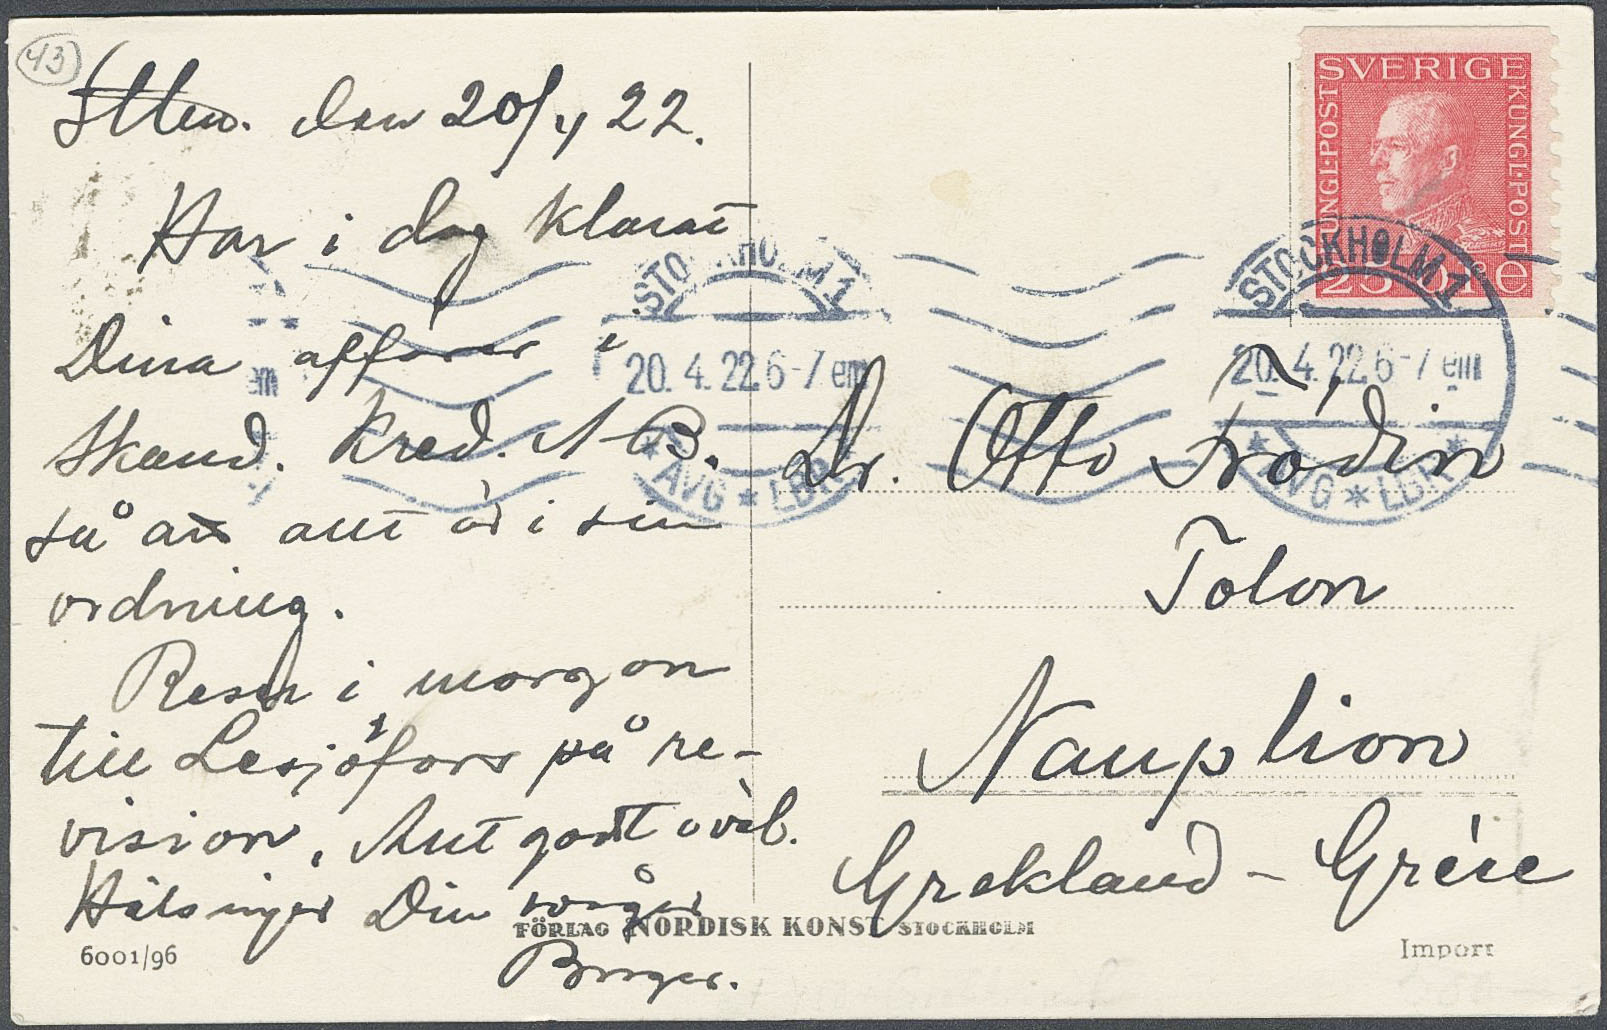 43
Sthlm. den 20/4 22.
Har i dag klarat
Dina affärer i
Skand. Kred. A B.
så att allt är i sin
ordning.
Reser i morgon
till Lesjöfors på re-
vision. Allt godt övàl.
Hälsingar Din svåger
Birger.
6001/96
FÖRLAG NORDISK KONST STOCKHOLM
SVERIGE
KUNGL·POST
KUNGL·POST
25 ÖRE
STOCKHOLM 1
20. 4. 22 6-7 em
AVG * LBR
STOCKHOLM 1
20. 4. 22 6-7 em
AVG * LBR
em
Dr. Otto Frödin
Tolon
Nauplion
Grekland - Grèce
Import